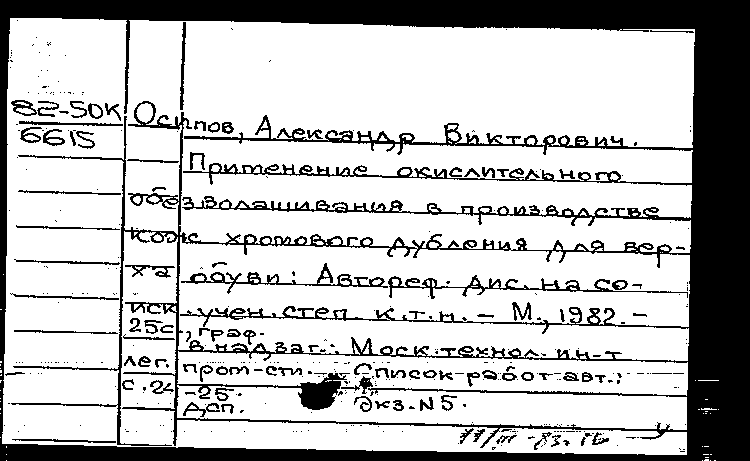 82-50К
6615
Осипов, Александр Викторович.
Применение окислительного
обезволашивания в производстве
кож хромового дубления для вер-
ха обуви: Автореф. дис. на со-
иск. учен. степ. к.т.н. - М., 1982. -
25с., граф.
В надзаг.: Моск. технол. ин-т
лег. пром-сти. Список работ авт.:
с. 24-25.
Дсп. Экз. N5.